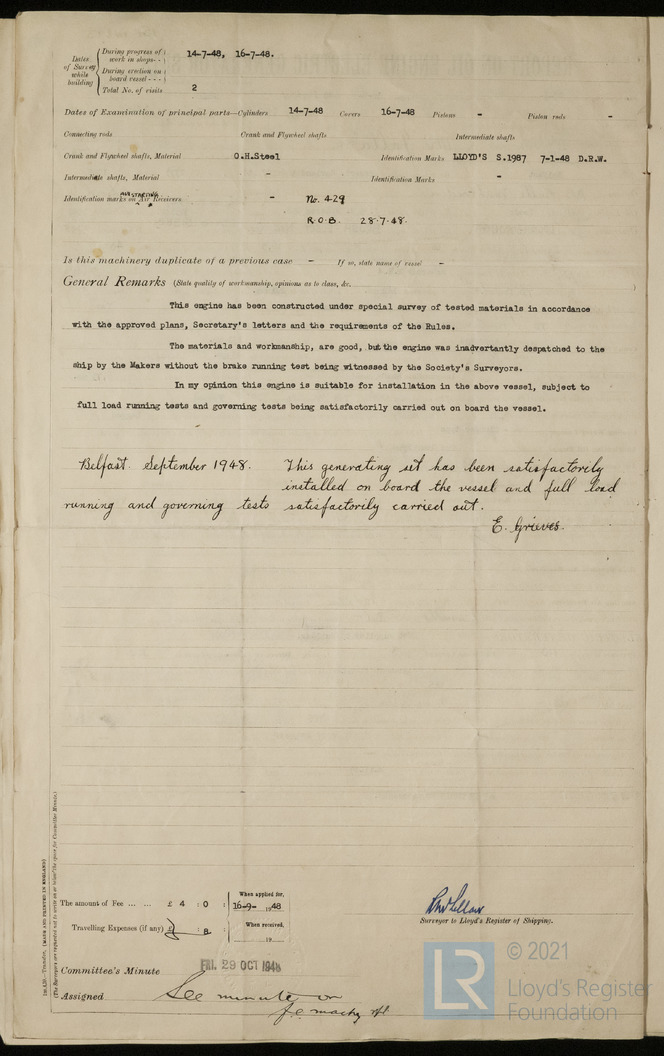 Dates of Survey while building
During progress of work in shops - - 14-7-48, 16-7-48.
During erection on board vessel - - -
Total No. of visits 2
Dates of Examination of principal parts—Cylinders 14-7-48 Covers 16-7-48 Pistons - Piston rods -
Connecting rods Crank and Flywheel shafts Intermediate shafts
Crank and Flywheel shafts, Material O.H.Steel Identification Marks LLOYD'S S.1987 7-1-48 D.R.W.
Intermediate shafts, Material - Identification Marks -
Identification marks on Air Receivers - No. 429
R.O.B. 28.7.48.
Is this machinery duplicate of a previous case - If so, state name of vessel -
General Remarks (State quality of workmanship, opinions as to class, &c.
This engine has been constructed under special survey of tested materials in accordance
with the approved plans, Secretary's letters and the requirements of the Rules.
The materials and workmanship, are good, but the engine was inadvertantly despatched to the
ship by the Makers without the brake running test being witnessed by the Society's Surveyors.
In my opinion this engine is suitable for installation in the above vessel, subject to
full load running tests and governing tests being satisfactorily carried out on board the vessel.
Belfast. September 1948. This generating set has been satisfactorily
installed on board the vessel and full load
running and governing tests satisfactorily carried out.
E. Grieves.
The amount of Fee ... ... £ 4 : 0 : When applied for, 16-9- 1948
Travelling Expenses (if any) £ : 8 : When received, 19
Surveyor to Lloyd's Register of Shipping.
Committee's Minute FRI. 29 OCT 1948
Assigned See minute on
© 2021
LR
Lloyd's Register
Foundation